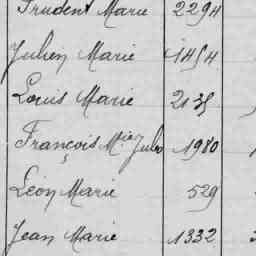 Prudent Marie 2294
Julien Marie 1454
Louis Marie 2135
François M.ie Julio 1980
Léon Marie 529
Jean Marie 1332